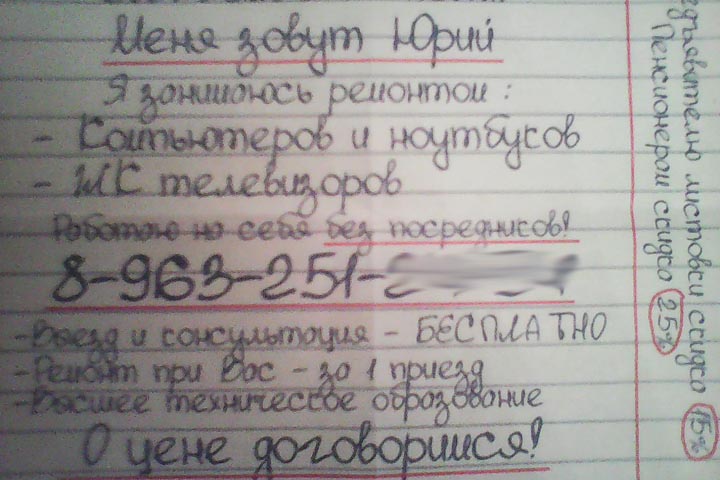 Меня зовут Юрий
Я занимаюсь ремонтом:
- Компьютеров и ноутбуков
- ЖК телевизоров
Работаю на себя без посредников!
8-963-251-
- Выезд и консультация - БЕСПЛАТНО
- Ремонт при Вас - за 1 приезд
- Высшее техническое образование
О цене договоримся!
Предъявителю листовки скидка 15%
Пенсионерам скидка 25%